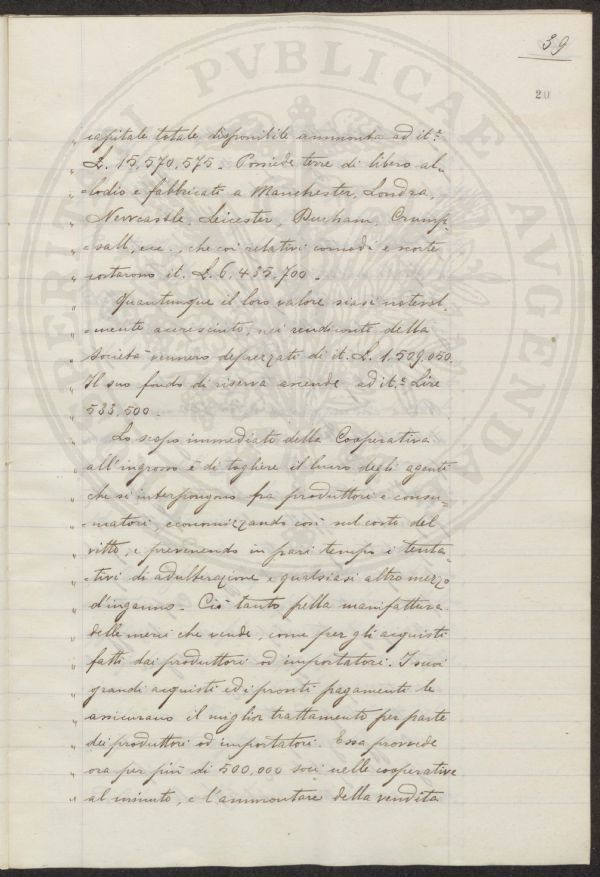 39
20
" capitale totale disponibile ammonta ad it.e
" L. 15,570,575. Possiede terre di libero al-
" -lodio e fabbricati a Manchester, Londra,
" Newcastle, Leicester, Durham, Crump-
" -sall, ecc., che coi relativi comodi e scorte
" costarono it. L. 6.435.700.
" Quantunque il loro valore siasi natural-
" -mente accresciuto, nei rendiconti della
" Società vennero deprezzati di it. L. 1.509,050.
" Il suo fondo di riserva ascende ad it.e Lire
" 533,500.
" Lo scopo immediato della Cooperativa
" all'ingrosso è di togliere il lucro degli agenti
" che si interpongono fra produttori e consu-
" -matori, economizzando così sul costo del
" vitto, e prevenendo in pari tempo i tenta-
" -tivi di adulterazione e qualsiasi altro mezzo
" d'inganno. Ciò tanto pella manifattura
" delle merci che vende, come per gli acquisti
" fatti dai produttori od importatori. I suoi
" grandi acquisti ed i pronti pagamenti le
" assicurano il miglior trattamento per parte
" dei produttori od importatori. Essa provvede
" ora per più di 500,000 soci nelle cooperative
" al minuto, e l'ammontare della vendita
PERITI PVBLICAE AVGENDAE